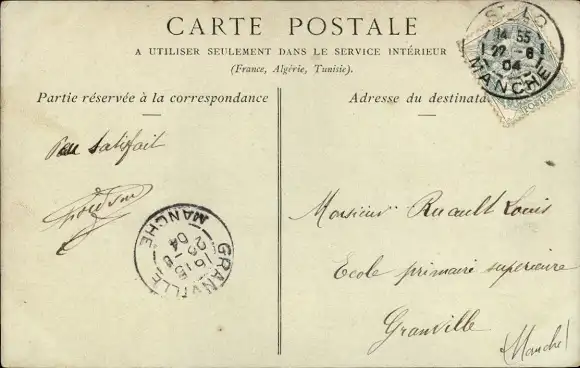 CARTE POSTALE
A UTILISER SEULEMENT DANS LE SERVICE INTÉRIEUR
(France, Algérie, Tunisie).
Partie réservée à la correspondance
Adresse du destinata
ST-LO
14 55
22 -8
04
MANCHE
POSTES
satisfait
GRANVILLE
16 15
04
MANCHE
Monsieur Ruault Louis
Ecole primaire supérieure
Granville
(Manche)